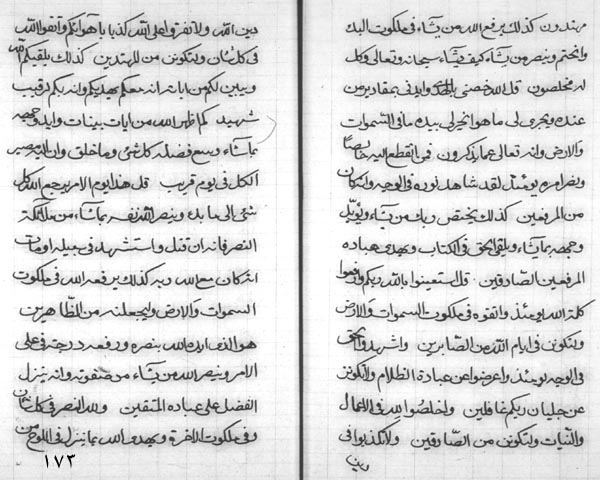 مهتدون كذلك يرفع الله من يشاء فى ملكوت البدء
وانختم وينصر من يشاء كيف يشاء سبحانه وتعالى وكل
له مخلصون قل الله خصنى وايدنى بمقادير من
عنده ويجرى لى ما هو بيده ما فى السموات
والارض وانه تعالى عما يذكرون فمن انقطع اليه خالصا
وينصر امره يومئذ لقد شاهد نوره فى الوجه وانه كان
من المرفعين كذلك يختص ربك من يشاء ويؤيد
وجهه بما يشاء ويلقى الحق فى الكتاب ويهدى عباده
المرفعين الصادقين قل استعينوا بالله ربكم وارفعوا
كلمة الله يومئذ واتقوه فى ملكوت السموات والارض
ولتكونن فى ايام الله من الصابرين واشهدوا الحق
فى الوجه يومئذ واعرضوا عن عبادة الظلام ولا تكونن
عن ربكم غافلين واخلصوا لله فى الاعمال
والنيات ولتكونن من الصادقين ولا تكذبوا فى
دين
دين الله ولا تفتروا على الله كذبا باهوائكم واتقوا الله
فى كل شان ولتكونن من المهتدين كذلك يلقيكم الله
ويبين لكم من اياته انه معكم يهديكم وانه بكم لرقيب
شهيد كم اظهر الله من ايات بينات وايد وجهه
بما شاء ويسع فضله كل شئ وما خلق وان اليه مصير
الكل فى يوم قريب قل هذا يوم الامر يرجع الله كل
شئ الى ما بدء وينصر الله نفسه بما يشاء من ملائكة
النصر فانه ان قتل واستشهد فى سبيله او مات
انه كان مع الله ربه كذلك يرفعه الله فى ملكوت
السموات والارض وليجعلنه من الظاهرين
هو الذى ايده الله بنصره ورفعه درجة فى على
الامر وينصر الله من يشاء من صفوته وانه ينزل
الفضل على عباده المتقين ولله النصر فى كل شان
وفى ملكوت الاخرة ويهدى الله بما ينزل فى اللوح من
١٧٣